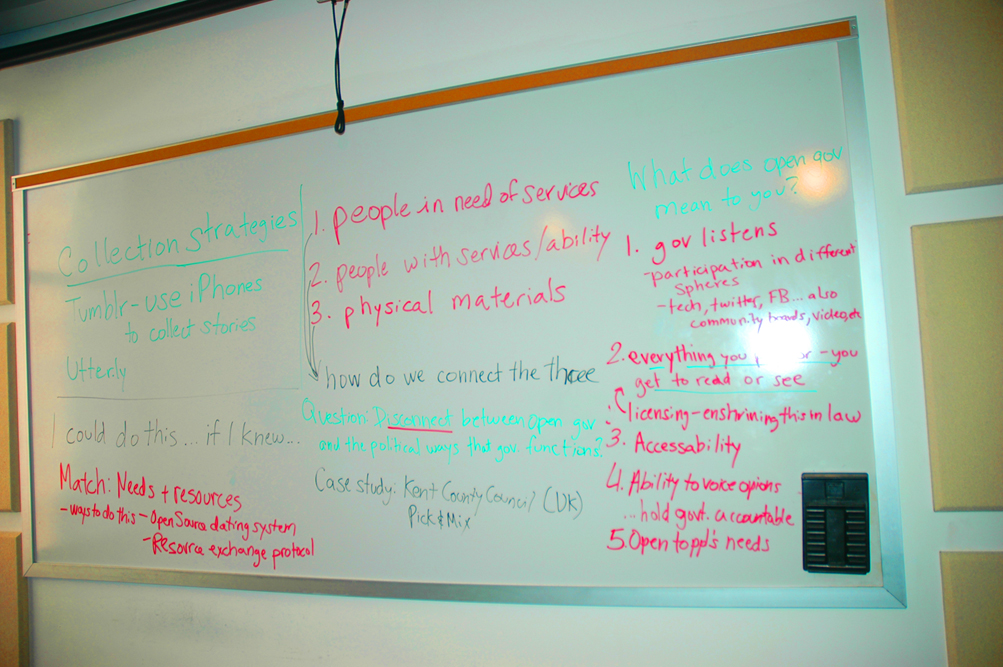 Collection strategies
Tumblr - use iPhones
to collect stories
Utterly
I could do this... if I knew...
Match: Needs + resources
- ways to do this - Open Source dating system
- Resource exchange protocol
1. people in need of services
2. people with services/ability
3. physical materials
how do we connect the three
Question: Disconnect between open gov
and the political ways that gov. functions?
Case study: Kent County Council (UK)
Pick & Mix
What does open gov
mean to you?
1. gov listens
- participation in different
spheres
- tech, twitter, FB... also
community boards, video, etc
2. everything you - you
get to read or see
licensing - enshrining this in law
3. Accessability
4. Ability to voice opions
... hold govt. accountable
5. Open to ppl's needs